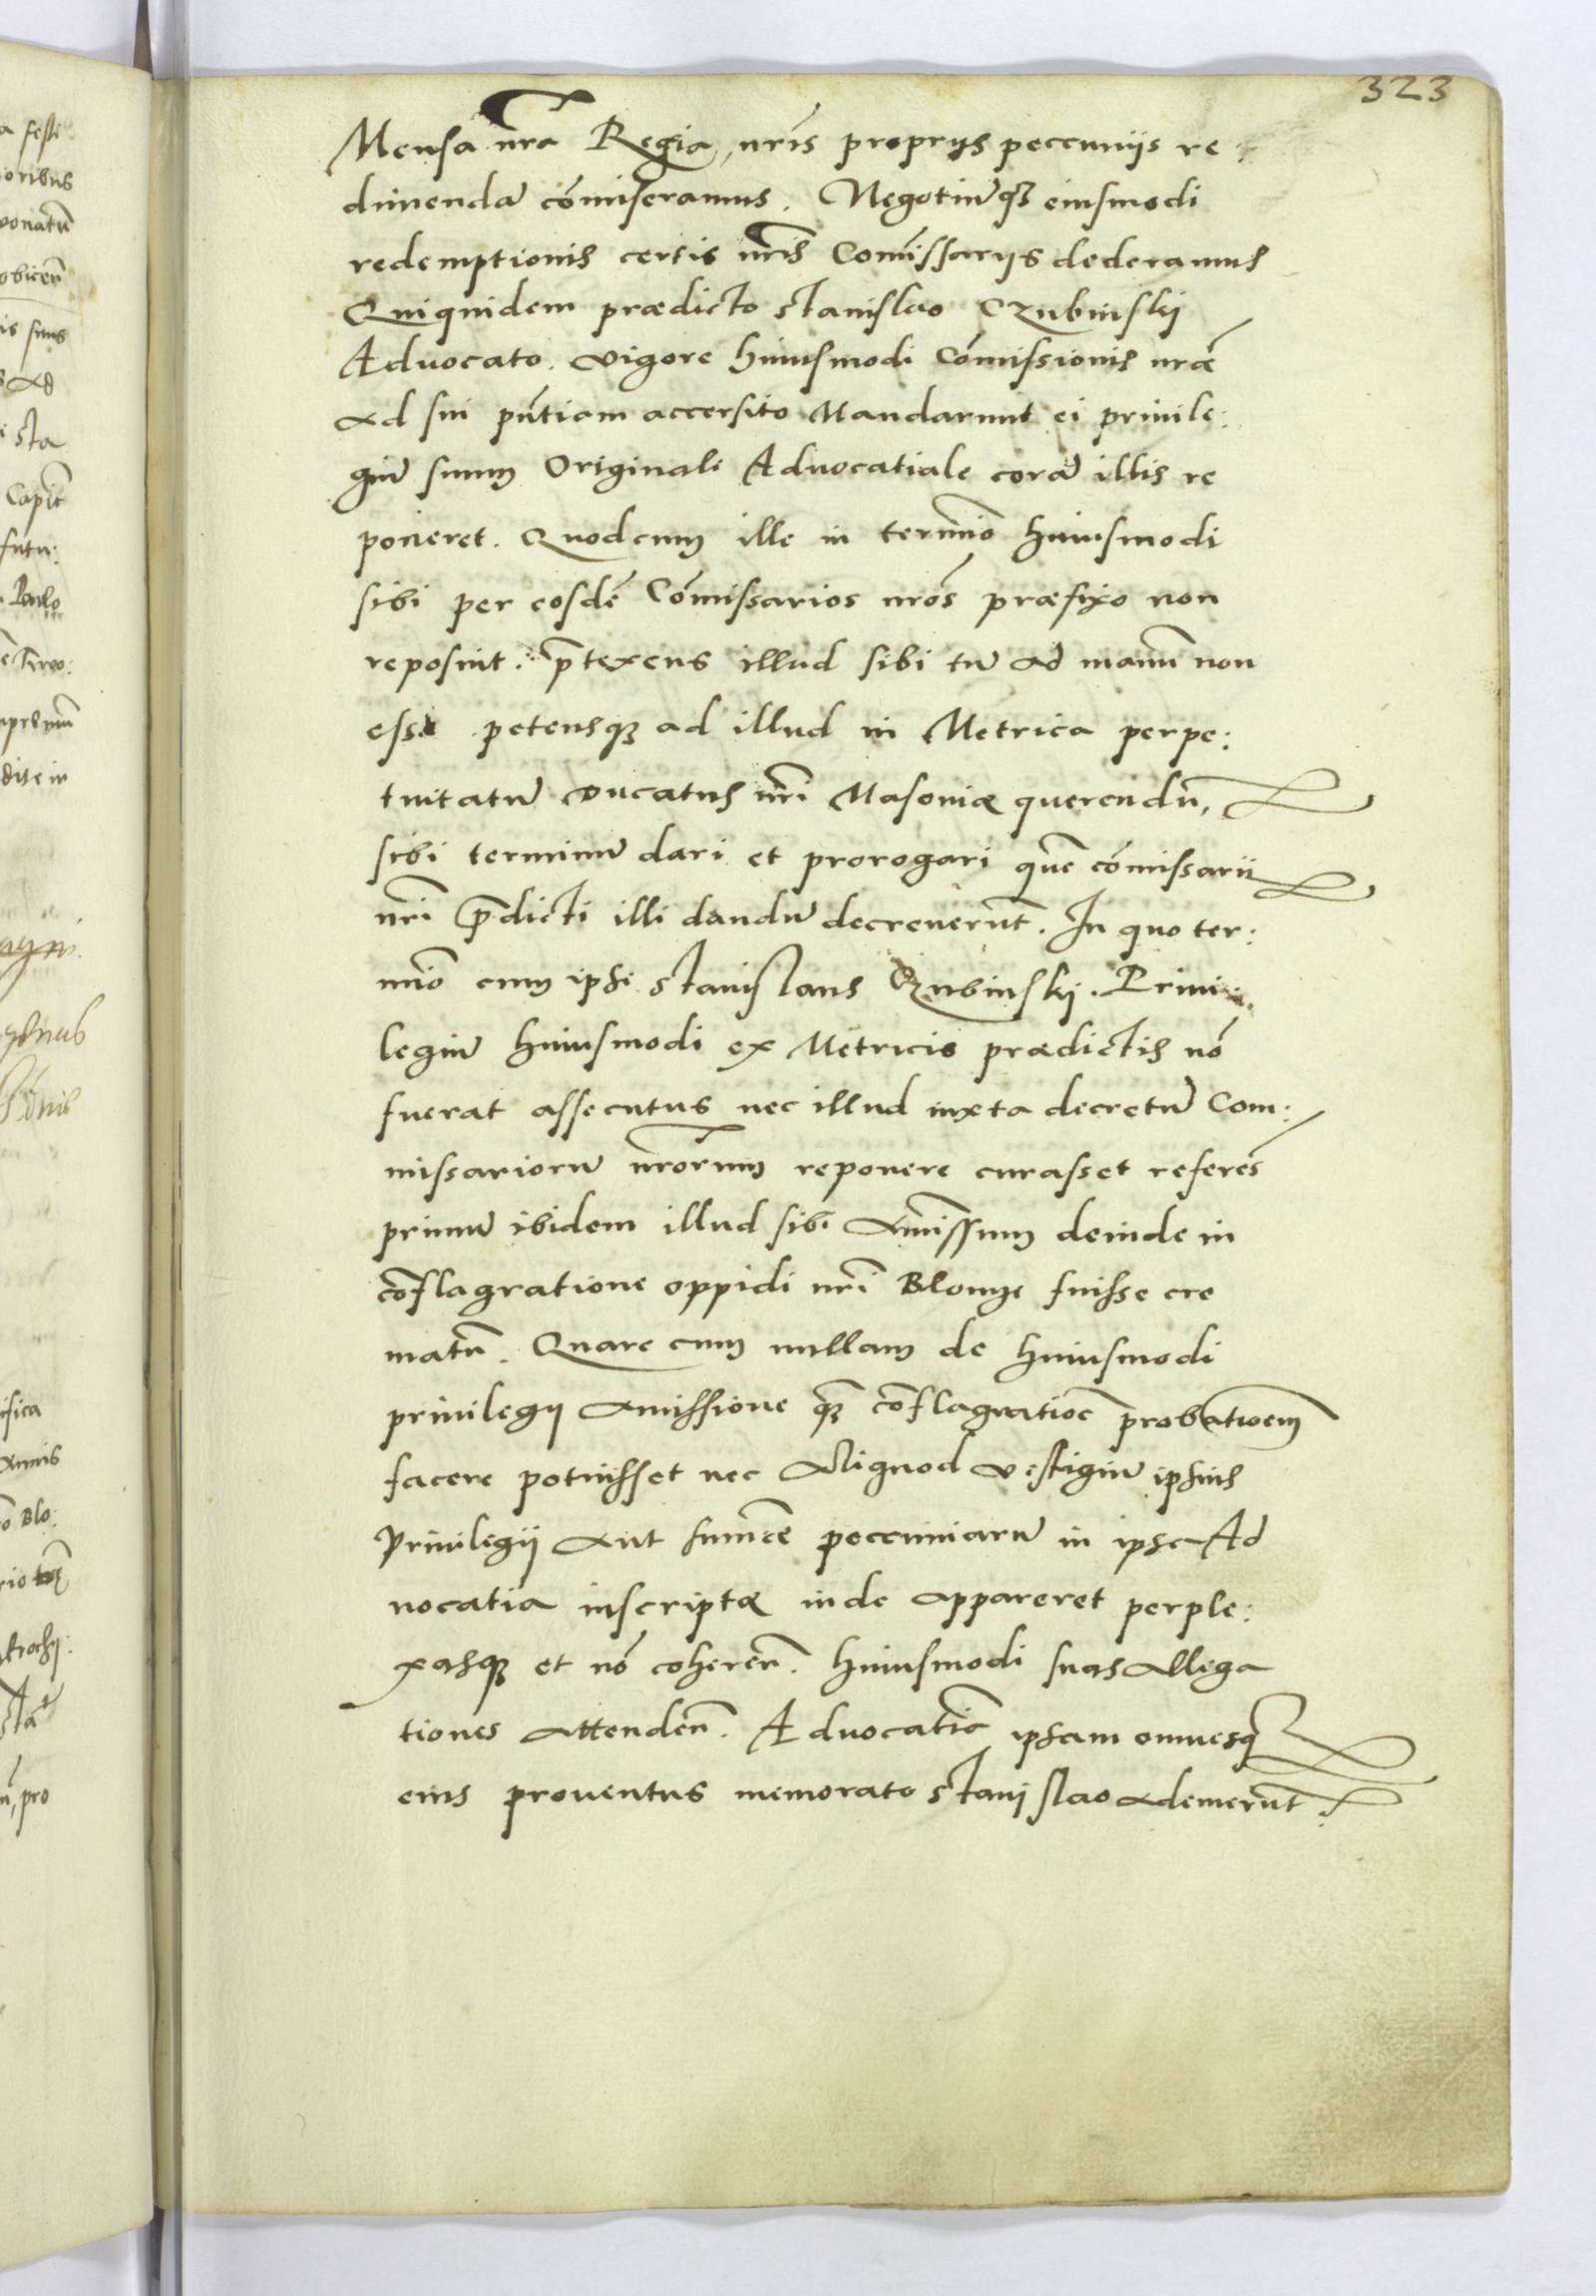 323
Mensa nrã Regia, nris proprijs peccunijs re
dimendã cõmiseramus. Negotiũq3 eiusmodi
redemptionis certis nris Comissarijs dederamus
Quiquidem prædicto Stanislao Czubinskj
Aduocato. vigore huiusmodi Cõmissionis nræ
ad sui pñtiam accersito Mandarunt ei priuile:
giũ suum Originale Aduocatiale corã illis re
poneret. Quod cum ille in termio huiusmodi
sibi per eosdẽ Cõmissarios nros præfixo non
reposuit. ptexens illud sibi tũ ad manũ non
esse petensq3 ad illud in Metrica perpe:
tuitatũ Ducatus nri Masoviæ querendũ,
sibi terminũ dari et prorogari quẽ cõmissarii
nri p̃dicti illi dandũ decreuerũt. In quo ter:
mio cum ipse Stanislaus Czubinskj. Priui:
legiũ huiusmodi ex Metricis prædictis nõ
fuerat assecutus nec illud iuxta decretũ Com:
missariorũ nrorum reponere curasset referẽs
primũ ibidem illud sibi amissum deinde in
cõflagratione oppidi nri Blonye fuisse cre
matũ. Quare cum nullam de huiusmodi
priuilegij amissione q3 cõflagratiõe probatioem
facere potuisset nec aliquod vestigiũ ipsius
Priuilegii aut sum̃e peccuniarũ in ipsa Ad
uocatia inscriptæ inde appareret perple:
xasq3 et nõ coherẽn. huiusmodi suas allega
tiones attendẽn. Aduocatiã ipsam omnesq3
eius prouentus memorato Stanislao ademerũt.